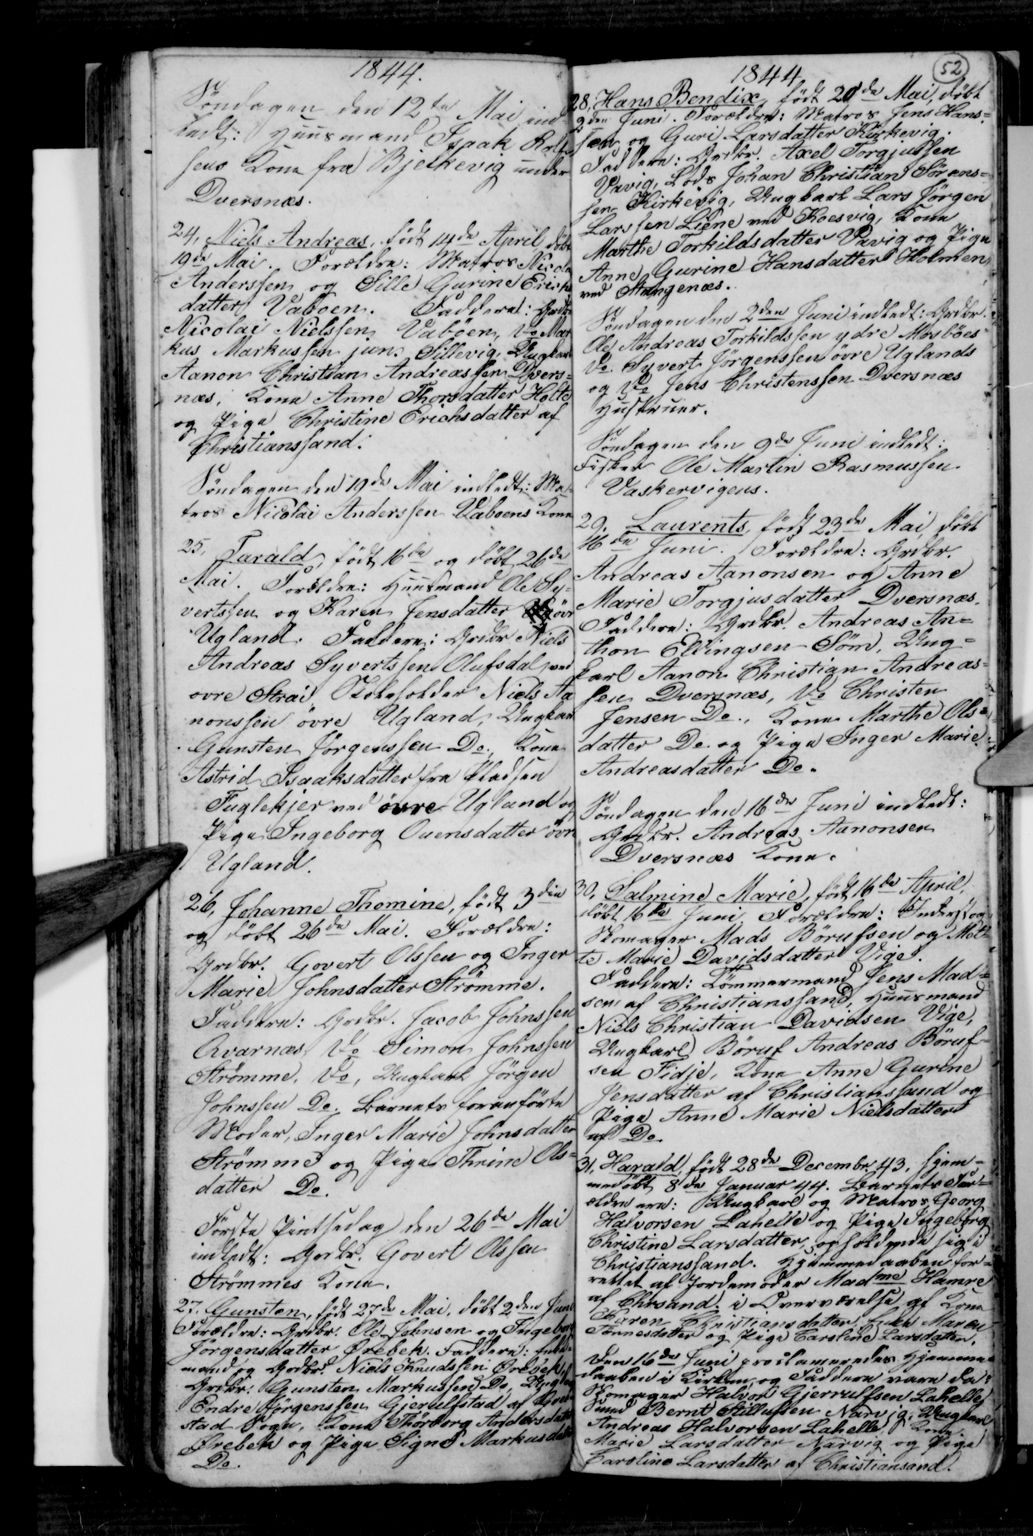 1844.
Söndagen den 12te Mai ind
ledt: Huusmand Isaak
sens Kone fra Bjelkevig under
Dversnæs.
24, Niels Andreas, födt 14de April, döbt
19de Mai. Forældre: Matros Nicolai
Anderssen og Sille Gurine Erichs
datter Vaboen. Faddere: Grdbr
Nicolai Nielssen Vaboen, Do Mar
kus Markussen jun. Sillevig, Ungkarl
Aanon Christian Andreassen Dvers=
næs, Kone Anne Thorsdatter Holte
og Pige Christine Erichsdatter af
Christianssand.
Söndagen den 19de Mai indledt: Ma=
tros Nicolai Anderssen Vaboens Kone
25, Tarald, födt 16de og döbt 26de
Mai. Forældre: Huusmand Ole Sy=
vertssen og Karen Jensdatter övre
Ugland. Faddere: Grdbr Niels
Andreas Syvertssen Olufsdal ved
övre Strai, Skoleholder Niels Aa
nonssen övre Ugland, Ungkarl
Gunsten Jörgenssen Do., Kone
Astrid Isaaksdatter fra Pladsen
Fuglekjer ved övre Ugland og
Pige Ingeborg Ouensdatter övre
Ugland.
26, Johanne Thomine, födt 3die
og döbt 26de Mai. Forældre:
Grdbr. Govert Olssen og Inger
Marie Johnsdatter Strömme.
Faddere: Grdbr. Jacob Johnssen
Qvarnæs, Do Simon Johnssen
Strömme, Do, Ungkarl Jörgen
Johnssen Do. Barnets foranförte
Moder, Inger Marie Johnsdatter
Strömme og Pige Thrine Ols=
datter Do.
Förste Pintsedag den 26de Mai
indledt: Grdbr. Govert Olssen
Strömmes Kone.
27. Gunsten, födt 27de Mai, döbt 2den Juni
Forældre: Grdbr. Ole Johnsen og Ingeborg
Jörgensdatter Örebek. Faddere:
mand og Grdbr. Niels Knudssen Örebek,
Grdbr. Gunsten Markussen Do, Ungkarl
Endre Jörgenssen Gjerulfstad af
stad Sogn, Kone Thorborg Andersdatter
Örebek og Pige Signe Markusdatter
Do.
52
1844
28, Hans Bendix, födt 20de Mai, döbt
2den Juni. Forældre: Matros Jens Hans=
sen og Guri Larsdatter Kirkevig.
Faddere: Grdbr. Axel Torgjussen
Vavig, Lods Johan Christian Sörens=
sen Kirkevig, Ungkarl Lars Jörgen
Larssen Liene ved Koesvig, Kone
Marthe Torkildsdatter Vavig og Pige
Anne Gurine Hansdatter Holmen
ved Stangenæs.
Söndagen den 2den Juni indledt: Grdbr.
Ole Andreas Torkildssen ydre Mosböes
Do. Syvert Jörgenssen övre Uglands
og Do Jens Christenssen Dversnæs
Hustruer.
Söndagen den 9de Juni indledt:
Fisker Ole Martin Rasmussen
Vaskervigens.
29. Laurents, födt 23de Mai, döbt
16de Juni. Forældre: Grdbr.
Andreas Aanonsen og Anne
Marie Torgjusdatter Dversnæs.
Faddere: Grdbr Andreas An=
thon Ellingsen Söm, Ung=
karl Aanon Christian Andreas=
sen Dversnæs, Do Christen
Jensen Do., Kone Marthe Ols=
datter Do. og Pige Inger Marie
Andreasdatter Do.
Söndagen den 16de Juni indledt:
Grdbr. Andreas Aanonsen
Dversnæs Kone.
30, Salmine Marie, födt 16de April,
döbt 16de Juni. Forældre: Inderst og
Skomager Mads Börufsen og Met=
te Marie Davidsdatter Vige.
Faddere: Tömmermand Jens Mad=
sen af Christianssand, Huusmand
Niels Christian Davidsen Vige,
Ungkarl Böruf Andreas Böruf=
sen Fidje, Kone Anne Gurine
Jensdatter af Christianssand og
Pige Anne Marie Nielsdatter
af Do.
31, Harald, födt 28de Decembr. 43, hjem=
medöbt 8de Januar 44. Barnets For=
ældre ere: Ungkarl og Matros Georg
Halvorsen Lahelle og Pige Ingeborg
Christine Larsdatter, opholdende sig i
Christianssand. Hjemmedaaben for=
rettet af Jordemoder Madme Hamre
af Chrsand. i Overværelse af Kone
Karen Christiansdatter, Maren
Tönnesdatter og Pige Caroline Larsdatter.
Den 16de Juni proclameredes Hjemme=
daaben i Kirken, og Faddere vare da:
Skomager Halvor Gjerulfssen Lahelle,
Bernt Tellufsen Narvig, Ungkarl
Andreas Halvorsen Lahelle, Kone
Marie Larsdatter Narvig og Pige
Caroline Larsdatter af Christianssand.